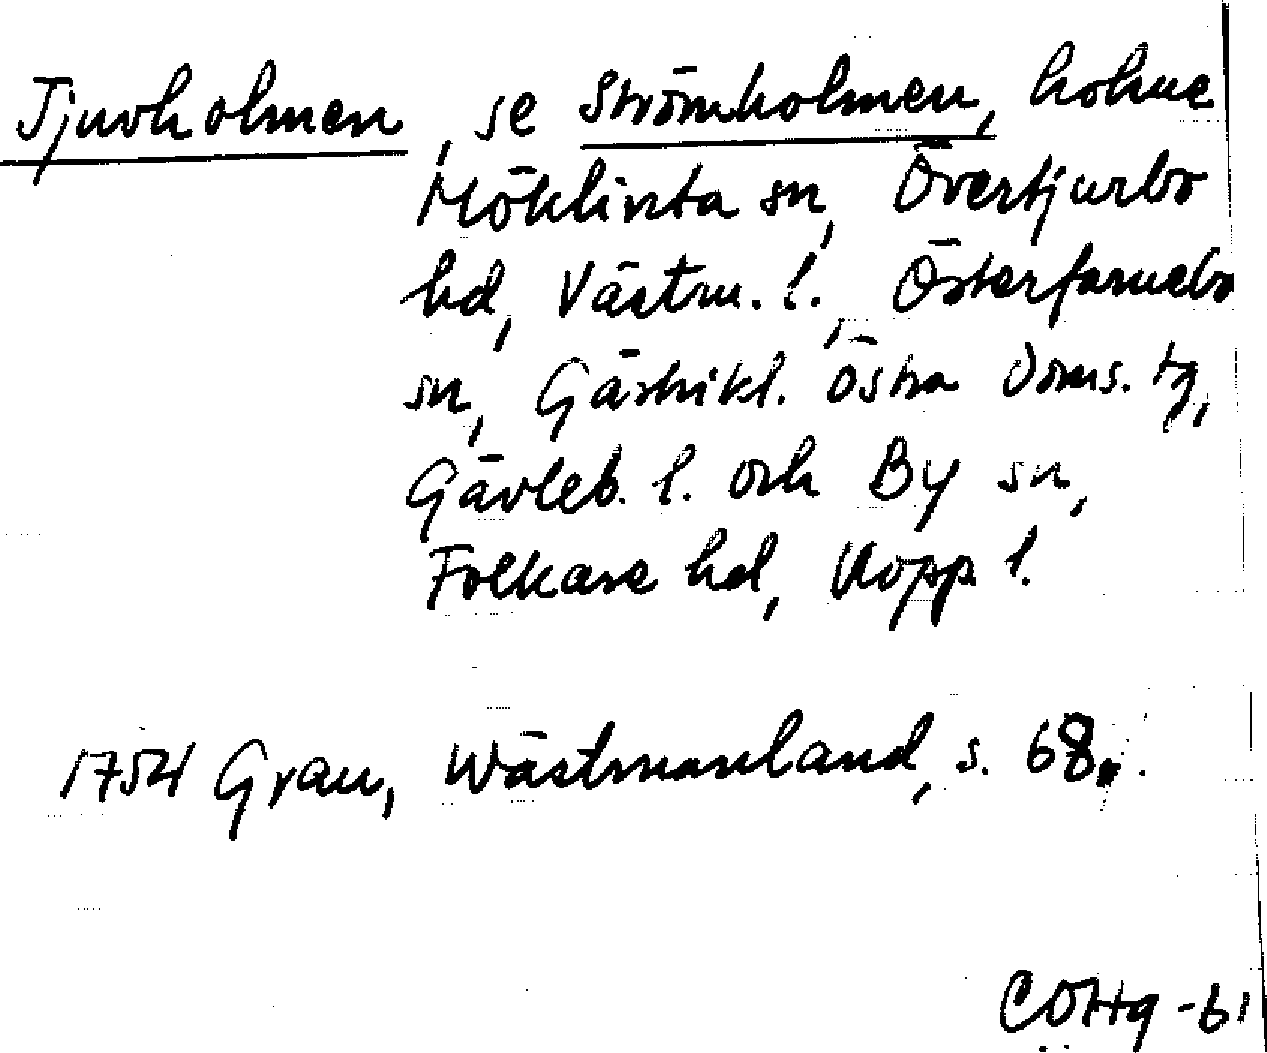 Tjurholmen, se Strömholmen, holme
Möklinta sn, Övertjurbo
hd, Västm. l., Österfärnebo
sn, Gästrikl. östra doms. tg,
Gävleb. l. och By sn,
Folkare hd, Kopp l.
1754 Grau, Wästmanland, s. 68.
COHg -61